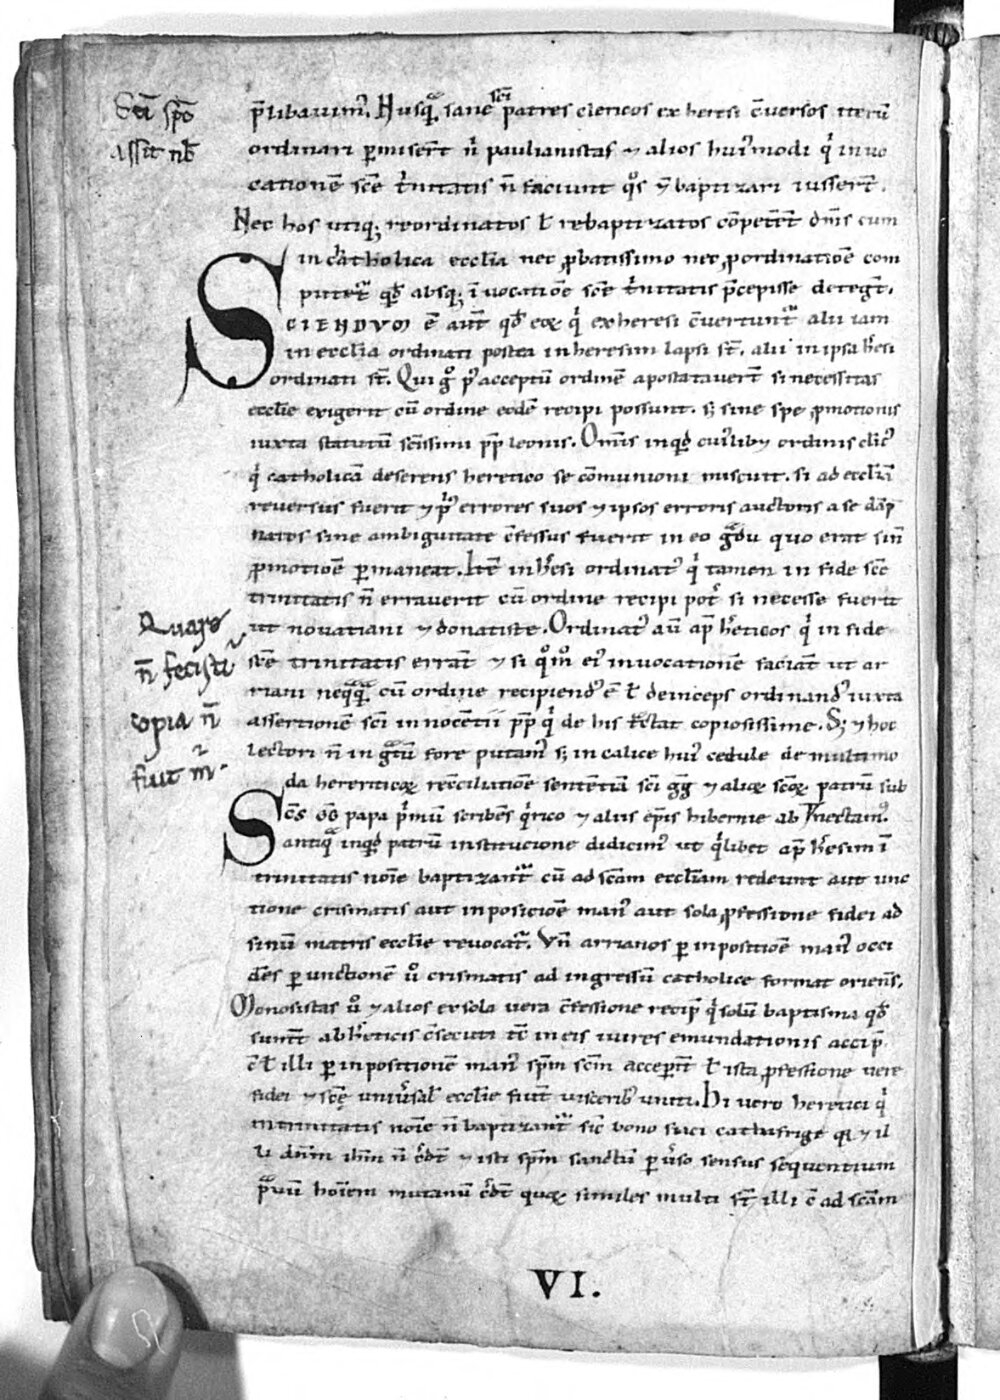 Sci sp̄c
assit nb̄
p̄libavim᷒. Nusq̄ sane sc̄i patres clericos ex heresi c̄versos iterū
ordinari p̄miser̄t n̄ paulianistas ⁊ alios hui᷒modi q̇ invo
cationē sc̄e t̓nitatis n̄ faciunt q̊s ⁊ baptizari iusser̄t.
Nec hos utiq; reordinatos ł rebaptizatos cōpetēt dn̄s cum
in catholica ecclīa nec p̱batissimo nec p̱ ordinatiōe com
putet᷑ qd̄ absq; īvocatiōe sc̄e t̓nitatis p̄cepisse deteg̃t.
SCIENDVM ē aut̄ qd̄ eoꝝ q̇ ex heresi c̄vertunt᷑ alii iam
in ecclīa ordinati postea in heresim lapsi st̄. alii in ipsa h̓esi
ordinati st̄. Qui g̊ p᷒ acceptū ordinē apostataver̄t si necessitas
ecclīe exigerit cū ordine eodē recipi possunt. s; sine spe p̱motionis
iuxta statutū sc̄issimi pp̄ leonis. Om̄is inqd̄ cui᷒lib; ordinis clic᷒
q̇ catholicā deserens heretico se cōmunioni miscuit. si ad ecclīā
reversus fuerit ⁊ p᷒ errores suos ⁊ ipsos erroris auctoris a se dāp
natos sine ambiguitate c̄fessus fuerit in eo g̃du quo erat sin̄
p̱motiōe p̱maneat. Itē in h̓esi ordinat᷒ q̇ tamen in fide sc̄e
trinitatis n̄ erraverit cū ordine recipi pot̓ si necesse fuerit
ut novatiani ⁊ donatiste. Ordinat᷒ aū ap̄ h̓eticos q̇ in fide
sc̄e trinitatis errāt ⁊ si q̊m̊ ei᷒ invocationē faciāt ut ar
riani neq̃q̃ cū ordine recipiend᷒ ē ł deinceps ordinand᷒ iuxta
assertionē sc̄i innocētii pp̄ q̇ de his tc̄tat copiosissime. S; ⁊ hoc
lectori n̄ in g̃tū fore putam᷒ s; in calice hui᷒ cedule de multimo
da hereticoꝝ rec̄ciliatiōe sententiā sc̄i gg̃ ⁊ alioꝝ sc̄oꝝ patrū sub
Sc̄s gg̃ papa p̓mū scribēs q̇rico ⁊ aliis ep̄is hibernie ab nectam᷒.
antiq̃ inqd̄ patrū institucione didicim᷒ ut q̓libet ap̄ h̓esim ī
trinitatis noīe baptizant᷑ cū ad sc̄am ecclīam redeunt aut unc
tione crismatis aut inposiciōe man᷒ aut sola p̱fessione fidei ad
sinū matris ecclīe revocāt᷑. Vn̄ arrianos p̱ inpositiōe man᷒ occi
dēs p̱ unctionē ů crismatis ad ingressū catholice format oriēs.
Monosistas ů ⁊ alios ex sola vera c̄fessione recip̄ q̇ solū baptisma qd̄
sunt ab h̓eticis c̄secuti tc̄ in eis vires emundationis accip̄
c̄ ł illi p̱ inpositionē man᷒ sp̄m sc̄m acceper̄t ł ista p̱fessione vere
fidei ⁊ sc̄ę univ̓salis ecclīe fuīt viscerib᷒ uniti. Hi vero heretici q̇
in trinitatis noīe n̄ baptizant᷑ sic̄ bono siaci cathafrige q̇ ⁊ il
li dn̄m ihm̄ n̄ c̓dt̄ ⁊ isti sp̄m sanctū p̱v̓so sensus sequentium
p̃vū hoīem mutanū c̓dt̄ quoꝝ similes multi st̄ illi c̄ ad sc̄am
Quare
n̄ fecisti
copia n̄
fuit m̓
VI.